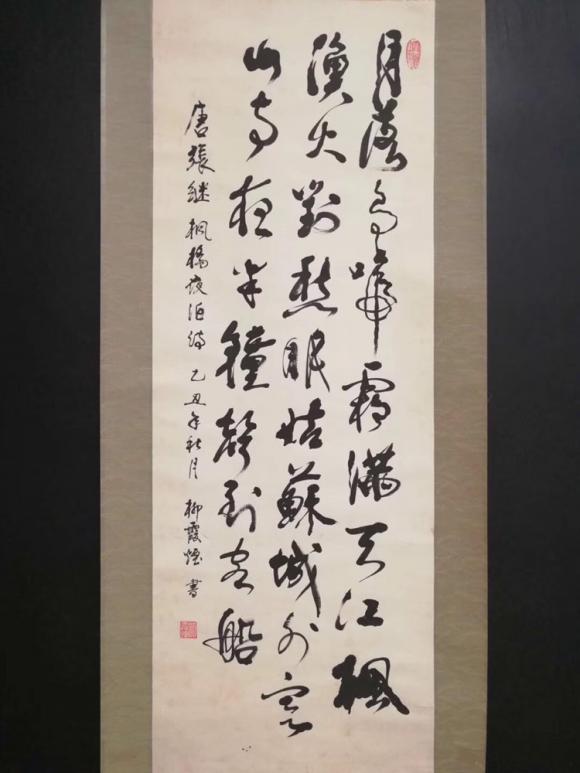 月落烏啼霜滿天江楓
漁火對愁眠姑蘇城外寒
山寺夜半鐘聲到客船
唐張繼楓橋夜泊詩 乙丑年秋月 柳霞 書